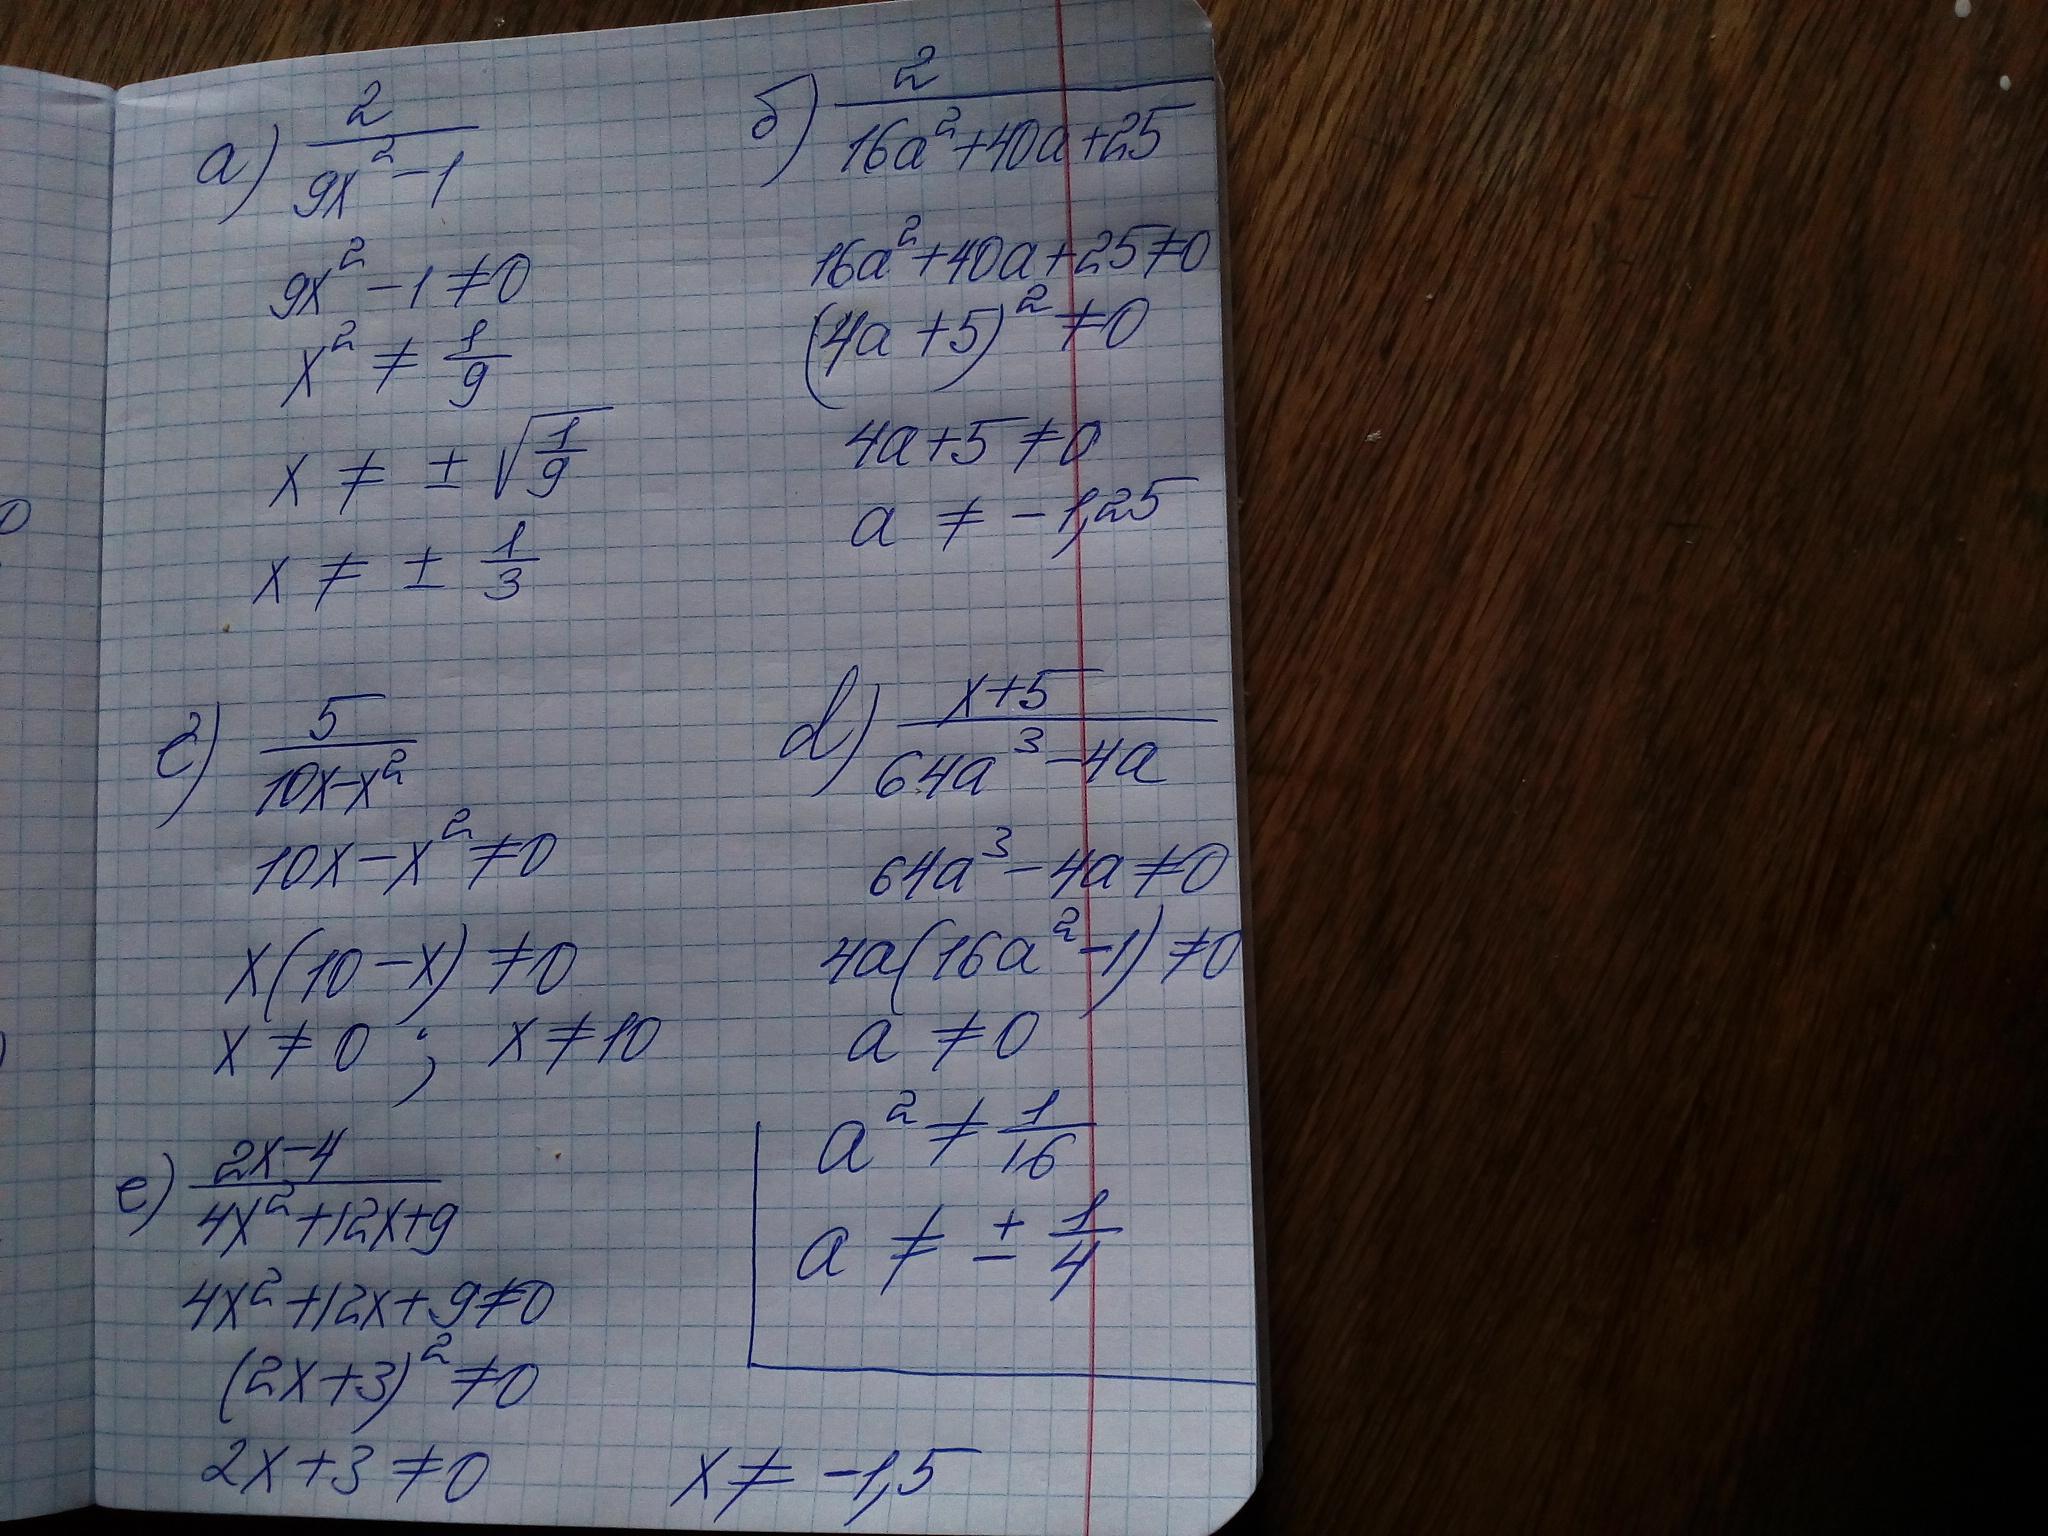 а) 2/(9x² - 1)
9x² - 1 ≠ 0
x² ≠ 1/9
x ≠ ± √(1/9)
x ≠ ± 1/3
б) 2/(16a² + 40a + 25)
16a² + 40a + 25 ≠ 0
(4a + 5)² ≠ 0
4a + 5 ≠ 0
a ≠ -1,25
5/(10x - x²)
10x - x² ≠ 0
x(10 - x) ≠ 0
x ≠ 0 ; x ≠ 10
d) (x + 5)/(64a³ - 4a)
64a³ - 4a ≠ 0
4a(16a² - 1) ≠ 0
a ≠ 0
a² ≠ 1/16
a ≠ ± 1/4
е) (2x - 4)/(4x² + 12x + 9)
4x² + 12x + 9 ≠ 0
(2x + 3)² ≠ 0
2x + 3 ≠ 0 x ≠ -1,5